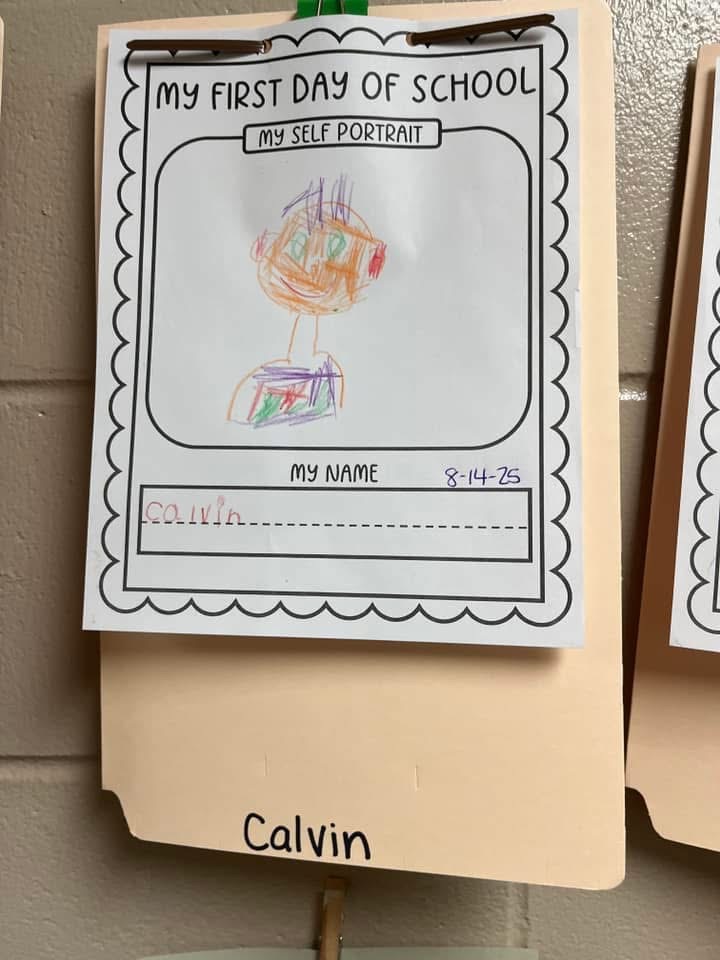 MY FIRST DAY OF SCHOOL
MY SELF PORTRAIT
MY NAME 8-14-25
calvin
Calvin